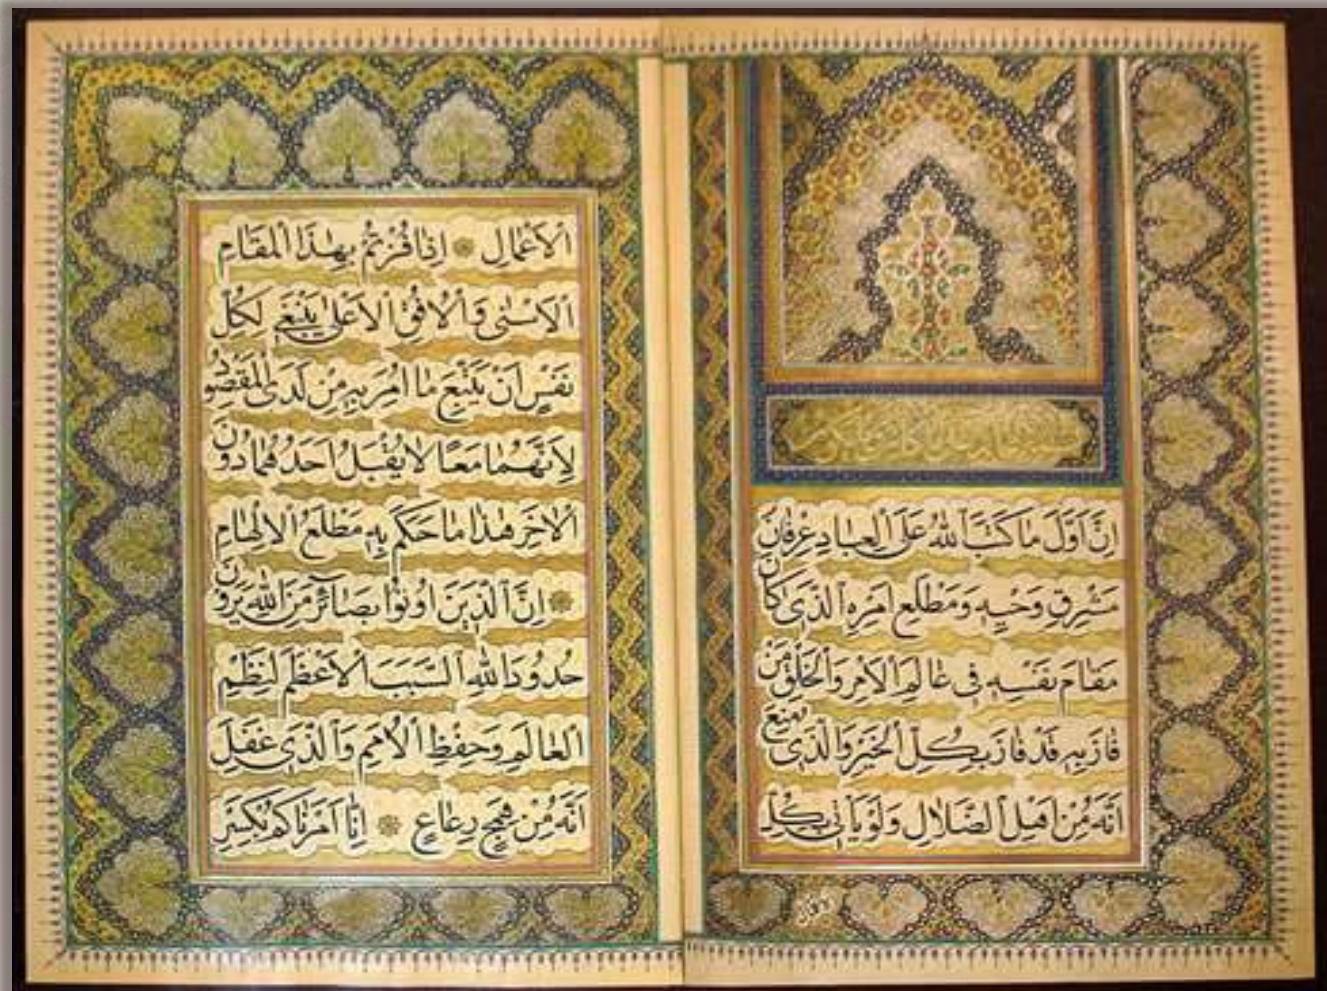 اِنَّ اَوَّلَ مَا كَتَبَ ٱللهُ عَلَى ٱلعِبَادِ عِرْفَانُ
مَشْرِقِ وَحْيِهِ وَمَطْلَعِ اَمْرِهِ ٱلَّذِى كَانَ
مَقَامَ نَفْسِهِ فِى عَالَمِ ٱلاَمْرِ وَٱلخَلْقِ مَنْ
فَازَ بِهِ قَدْ فَازَ بِكُلِّ ٱلخَيْرِ وَٱلَّذِى مُنِعَ
اِنَّهُ مِنْ اَهْلِ ٱلضَّلالِ وَلَوْ يَأْتِى بِكُلِّ
ٱلاَعْمَالِ ۞ اِذَا فُزْتُمْ بِهٰذَا ٱلمَقَامِ
ٱلاَسْنٰى وَٱلاُفُقِ ٱلاَعْلىٰ يَنْبَغِى لِكُلِّ
نَفْسٍ اَنْ يَتَّبِعَ مَا اُمِرَ بِهِ مِنْ لَدَى ٱلمَقْصُودِ
لِاَنَّهُمَا مَعًا لَا يُقْبَلُ اَحَدُهُمَا دُونَ
ٱلاٰخَرِ هٰذَا مَا حَكَمَ بِهِ مَطْلَعُ ٱلاِلْهَامِ
۞ اِنَّ ٱلَّذِينَ اُوتُوا بَصَائِرَ مِنَ ٱللهِ يَرَوْنَ
حُدُودَ ٱللهِ ٱلسَّبَبَ ٱلاَعْظَمَ لِنَظْمِ
ٱلعَالَمِ وَحِفْظِ ٱلاُمَمِ وَٱلَّذِى غَفَلَ
اِنَّهُ مِنْ هَمَجٍ رَعَاعٍ ۞ اِنَّا اَمَرْنَاكُمْ بِكَسْرِ